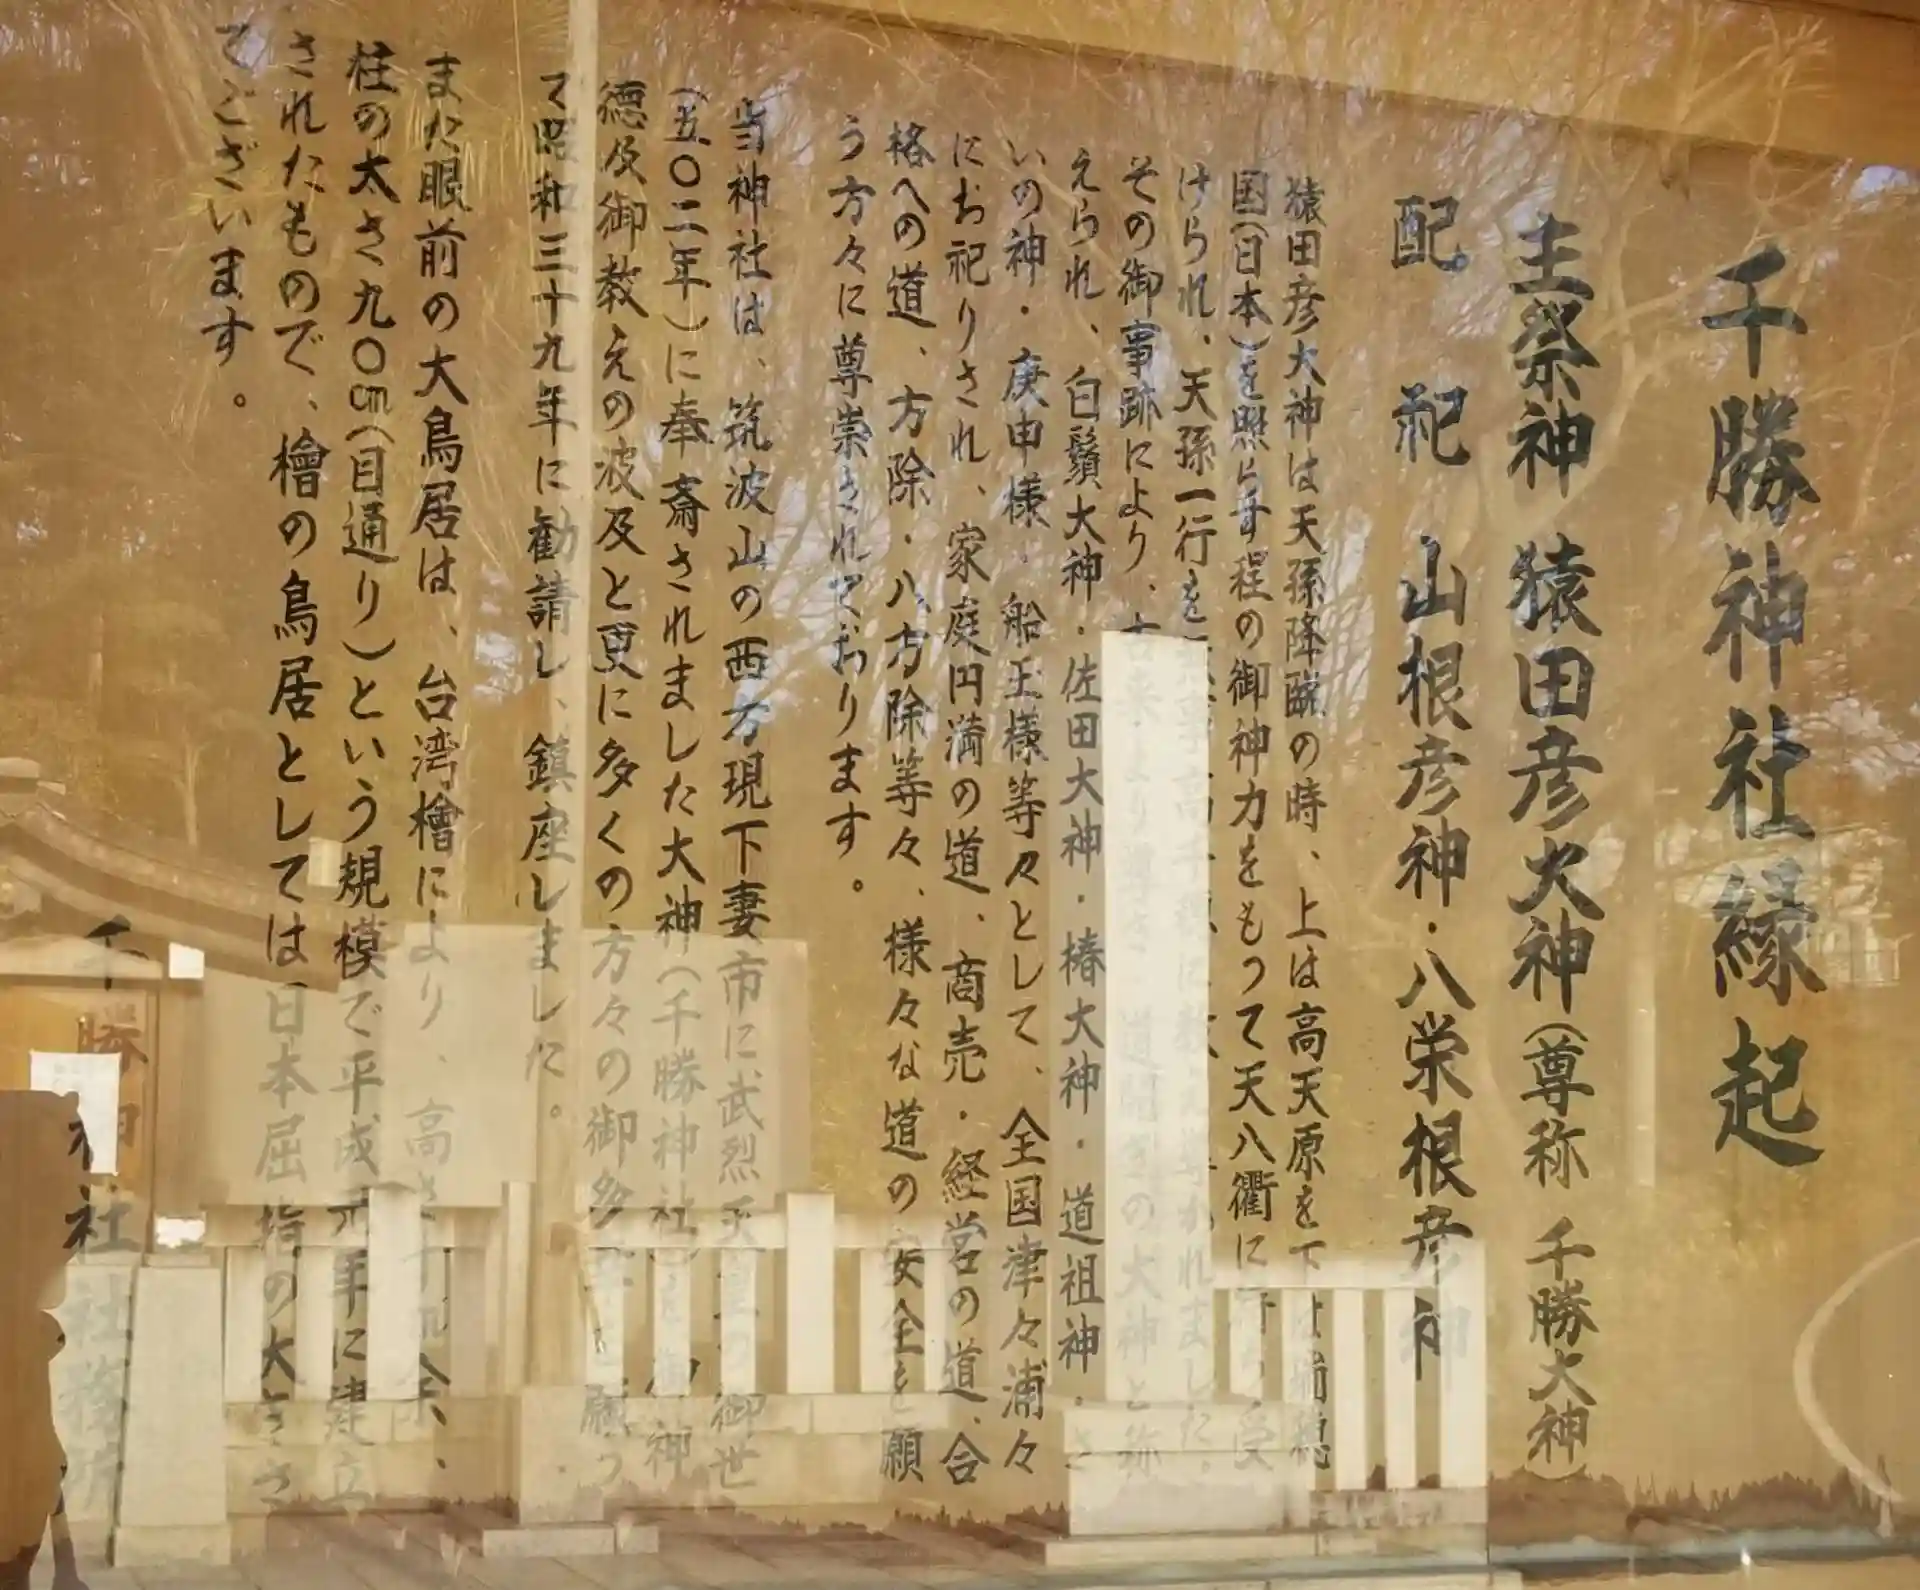 千勝神社縁起
主祭神 猿田彦大神(尊称 千勝大神)
配祀 山根彦神・八栄根彦神
猿田彦大神は天孫降臨の時、上は高天原を
国(日本)を照らす程の御神力をもって天八衢に
けられ、天孫一行を
その御事跡により、 の大神と称
えられ、白鬚大神・佐田大神・椿大神・道祖神・
いの神・庚申様・船玉様等々として、全国津々浦々
にお祀りされ、家庭円満の道、商売・経営の道、合
格への道、方除・八方除等々、様々な道の安全を願
う方々に尊崇されております。
当神社は、筑波山の西方現下妻市に、武烈天皇の御世
(五〇二年)に奉斎されました大神(千勝神社)を 御神
徳及御教えの波及と更に多くの方々の御多幸を願っ
て昭和三十九年に勧請し、鎮座しました。
また眼前の大鳥居は、台湾檜により、高さ 余、
柱の太さ九〇cm(目通り)という規模で平成元年に建立
されたもので、檜の鳥居としては日本屈指の大きさ
でございます。
千勝神社社務所